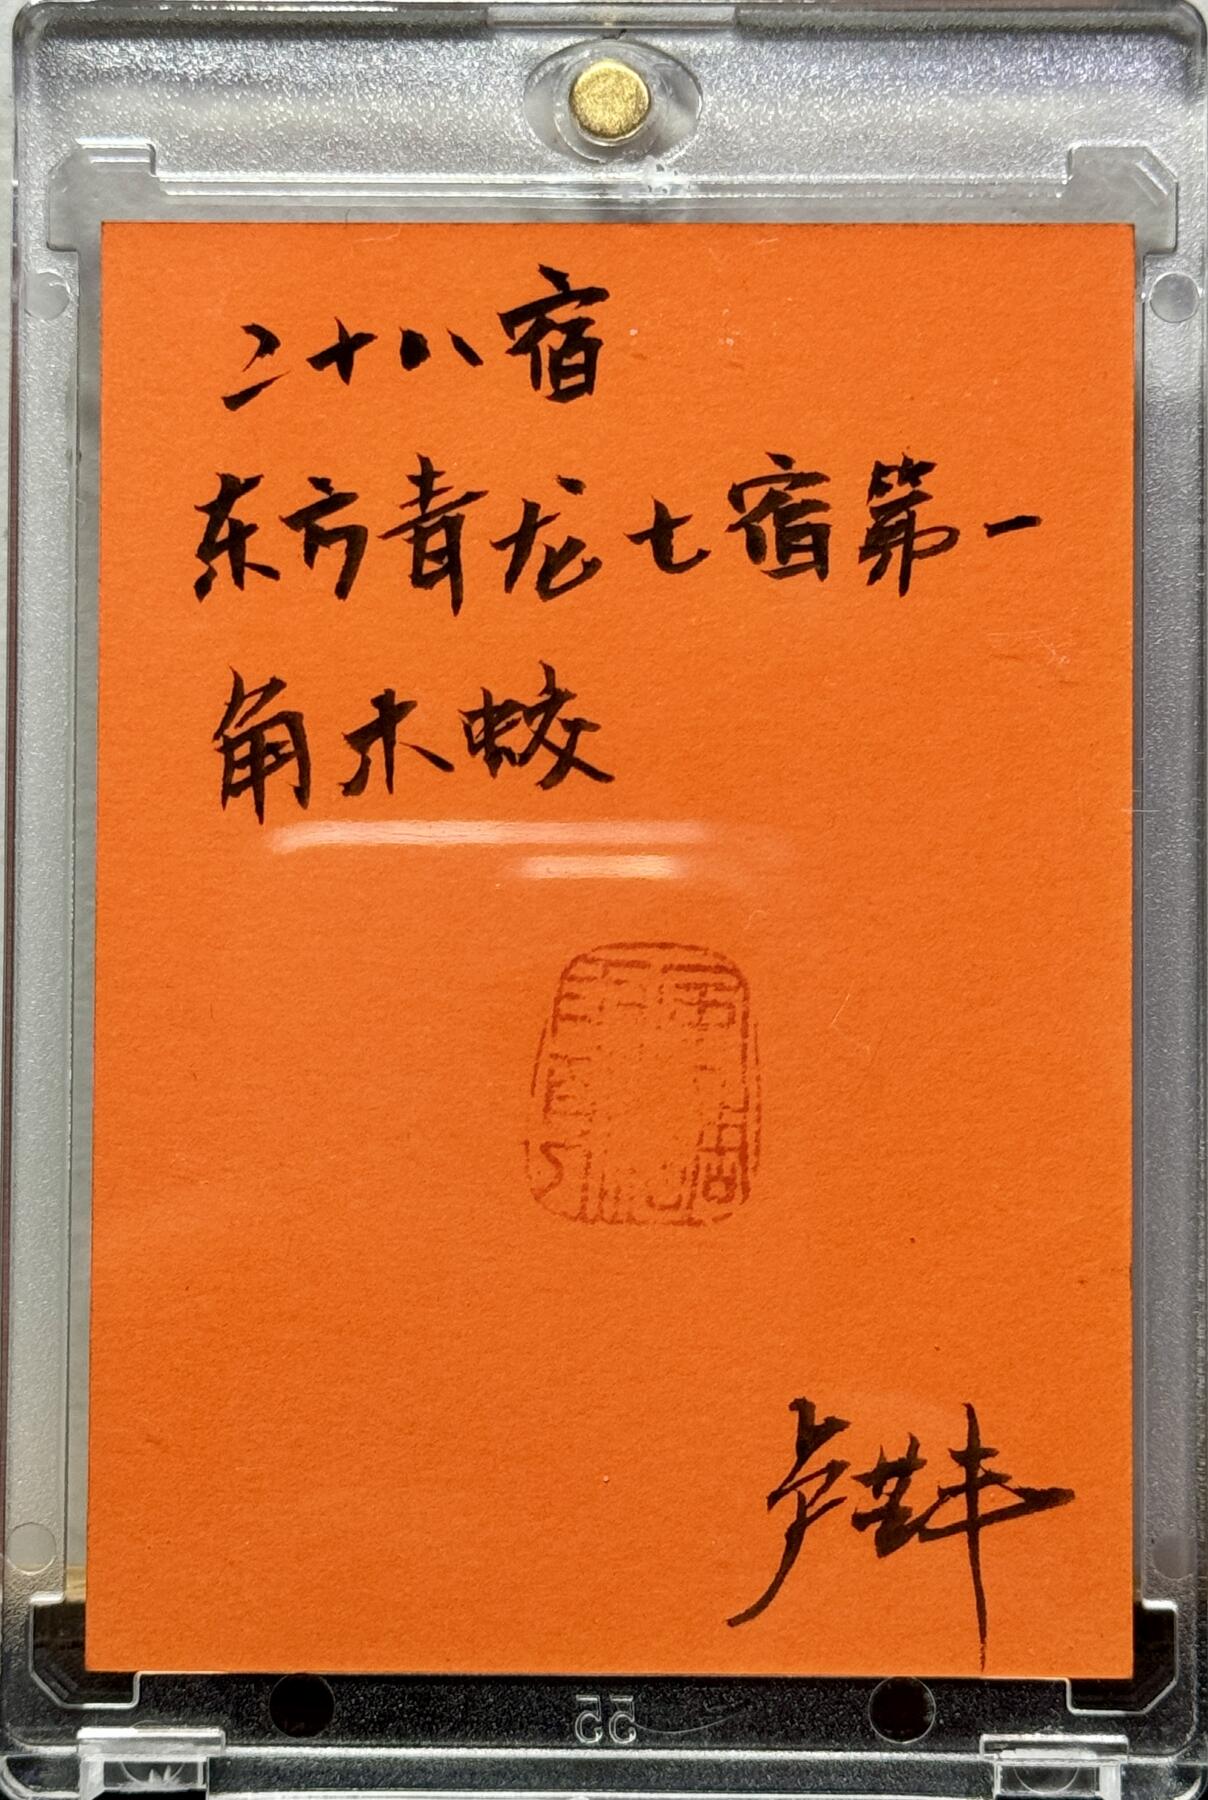 二十八宿
东方青龙七宿第一
角木蛟
卢世丰
55